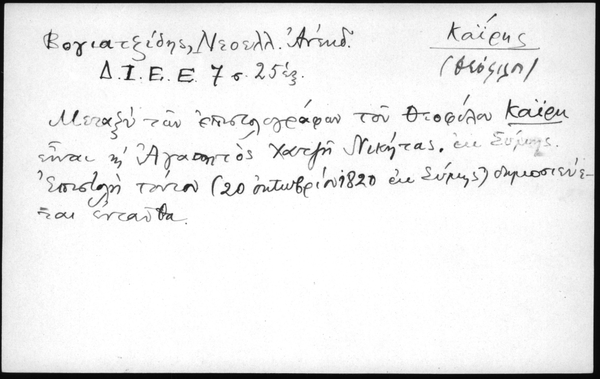 Βογιατζίδης, Νεοελλ. Ἀνέκδ. Καΐρης
Δ.Ι.Ε.Ε 7 σ. 25 ἑξ. (Θεόφιλος)
Μεταξύ τῶν ἐπιστολογράφων τοῦ Θεοφίλου Καΐρη
εἶναι κ' Ἀγαπητὸς Χατζῆ Νικήτας, ἐκ Σύμης.
Ἐπιστολὴ τούτου (20 ὀκτωβρίου 1820 ἐκ Σύμης) δημοσιεύε-
ται ἐνταῦθα.